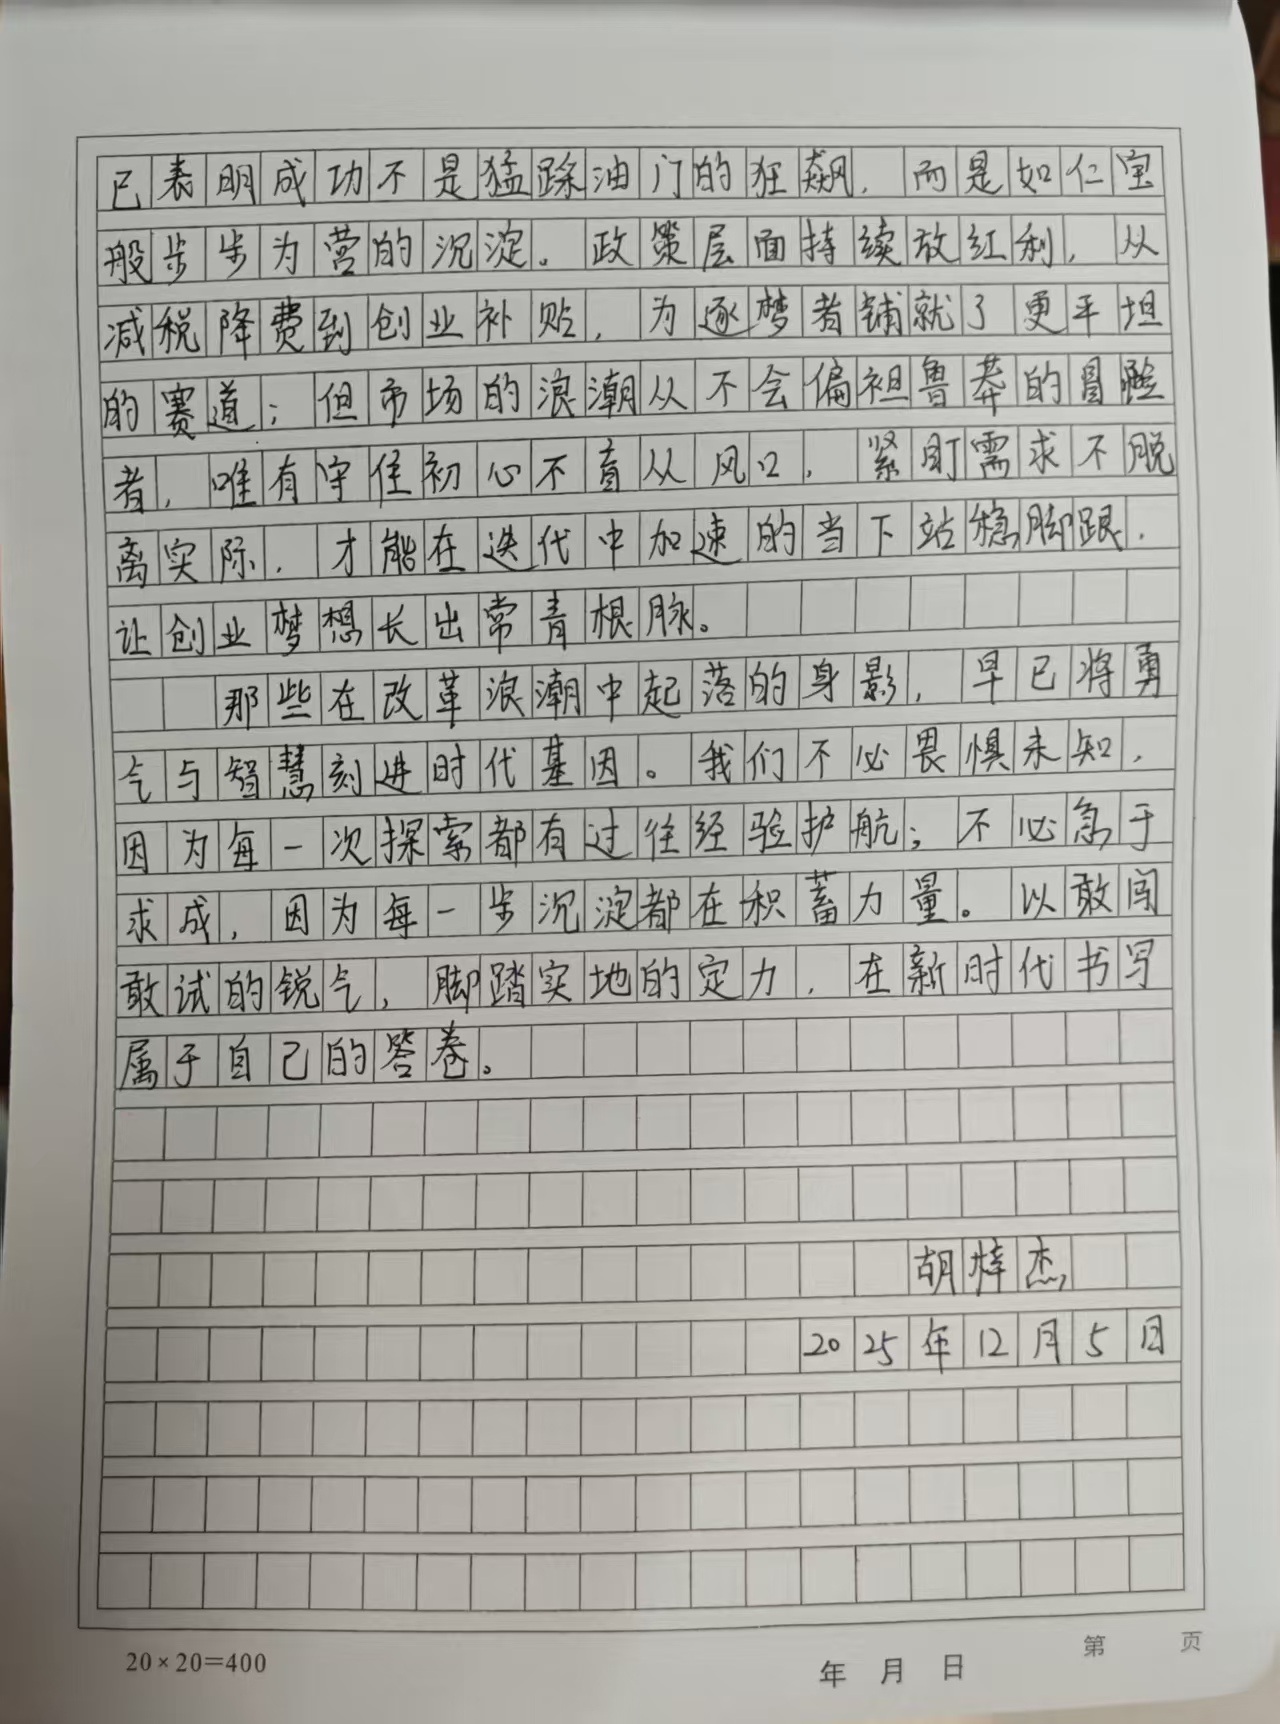 已表明成功不是猛踩油门的狂飙，而是如仁宝
般步步为营的沉淀。政策层面持续放红利，从
减税降费到创业补贴，为逐梦者铺就了更平坦
的赛道；但市场的浪潮从不会偏袒鲁莽的冒险
者，唯有守住初心不盲从风口，紧盯需求不脱
离实际，才能在迭代中加速的当下站稳脚跟，
让创业梦想长出常青根脉。
那些在改革浪潮中起落的身影，早已将勇
气与智慧刻进时代基因。我们不必畏惧未知，
因为每一次探索都有过往经验护航；不必急于
求成，因为每一步沉淀都在积蓄力量。以敢闯
敢试的锐气，脚踏实地的定力，在新时代书写
属于自己的答卷。
胡梓杰
2025年12月5日
20×20=400
年 月 日
第 页